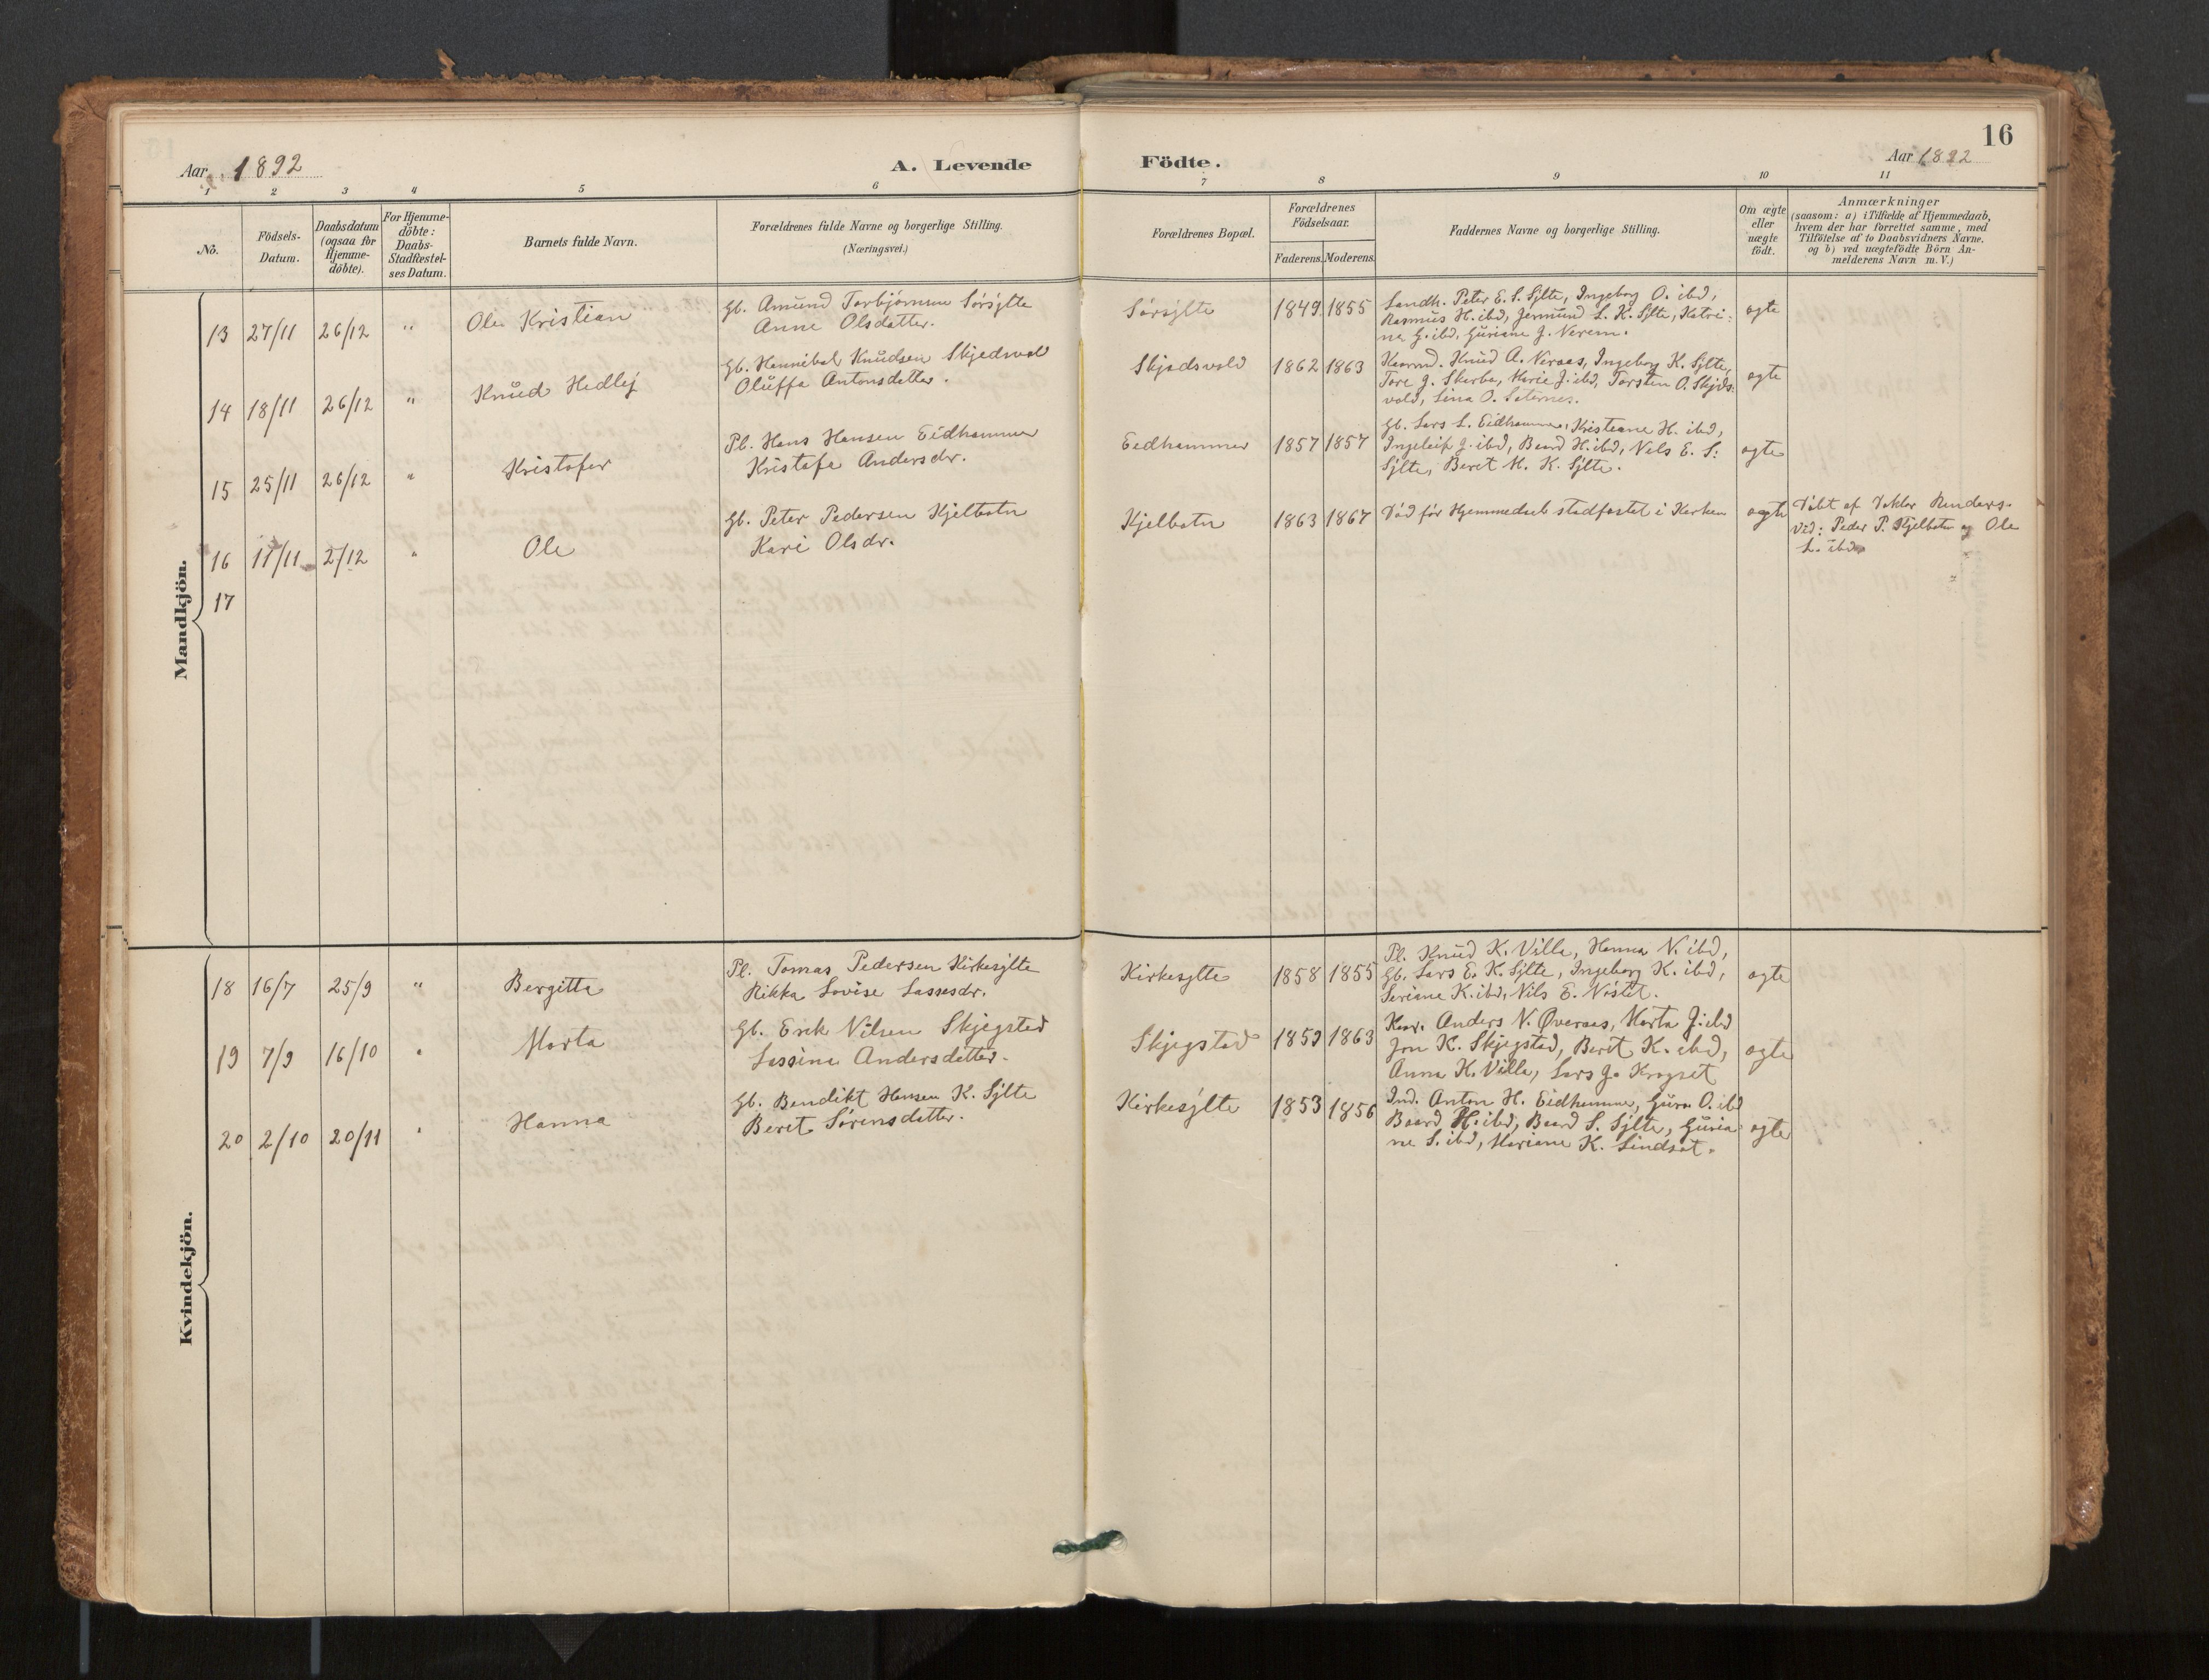 16
Aar 1892
A. Levende Födte.
Aar 1892
1 2 3 4 5 6 7 8 9 10 11
No.
Födsels-Datum.
Daabsdatum (ogsaa for Hjemme-döbte).
For Hjemme-döbte: Daabs-Stadfæstel-ses Datum.
Barnets fulde Navn.
Forældrenes fulde Navne og borgerlige Stilling.
(Næringsvei.)
Forældrenes Bopæl.
Forældrenes Födselsaar.
Faderens. Moderens.
Faddernes Navne og borgerlige Stilling.
Om ægte eller uægte födt.
Anmærkninger
(saasom: a) i Tilfælde af Hjemmedaab,
hvem der har forrettet samme, med
Tilföielse af to Daabsvidners Navne.
og b) ved uægtefödte Börn An-
melderens Navn m. V.)
Mandkjön.
13 27/11 26/12 " Ole Kristian
Gb. Amund Torbjørnsen Sørsylte
Anne Olsdatter.
Sørsylte 1849 1855
Landh. Peter E. S. Sylte, Ingeborg O. ibd,
Rasmus H. ibd, Jermund L. K. Sylte, Katri-
ne G. ibd, Guriane J. Nerem.
ægte
14 18/11 26/12 " Knud Hedlej
Gb. Hannibal Knudsen Skjedsvol
Oluffa Antonsdatter.
Skjedsvold 1862 1863
Knud A. Veraas, Ingeborg K. Sylte,
Tore J. Skorba, Marie J. ibd, Torsten O. Skjeds-
vold, Lina O. Seternes.
ægte
15 25/11 26/12 " Kristofer
Pl. Hans Hansen Eidhammer
Kristofa Andersdr.
Eidhammer 1857 1857
Gb. Lars L. Eidhammer, Kristiane H. ibd,
Ingeleif J. ibd, Baard H. ibd, Nels E. S:
Sylte, Beret M. K. Sylte.
ægte
16 11/11 2/12 " Ole
Gb. Peter Pedersen Kjelbotn
Kari Olsdr.
Kjelbotn 1863 1867
Död för Hjemmedaab stadfæstet i Kirken
ægte
Döbt af Doktor
Vid: Peder P. Kjelbotn og Ole
L. ibd
17
Kvindekjön.
18 16/7 25/9 " Bergitta
Pl. Tomas Pedersen Kirkesylte
Rikka Lovise Lassesdr.
Kirkesylte 1858 1855
Pl. Knud K. Villa, Hanna N. ibd,
Gb. Lars E. K. Sylte, Ingeborg K. ibd,
Seriane K. ibd, Nils E. Nöstet.
ægte
19 7/9 16/10 " Marta
Gb. Erik Nilsen Skjegstad
Lassine Andersdatter.
Skjegstad 1859 1863
Anders N. Øveraas, Marta J. ibd
Jon K. Skjegstad, Berit K. ibd,
Anna K. Villa, Lars J. Krogset
ægte
20 2/10 20/11 " Hanna
Gb. Bendikt Hansen K. Sylte
Beret Sørensdatter.
Kirkesylte 1853 1856
Ind. Anton H. Eidhammer, Guru O. ibd
Baard H. ibd, Baard S. Sylte, Guria-
ne S. ibd, Mariane K. Lindset.
ægte